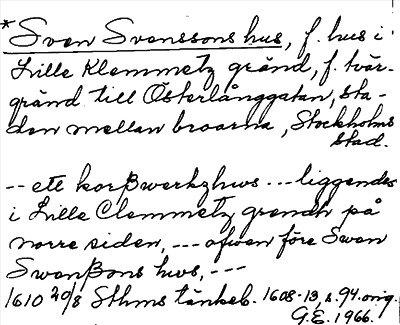 *Sven Svenssons hus, f. hus i
Lille Klemmetz gränd, f. tvär-
gränd till Österlånggatan, Sta-
den mellan broarna, Stockholms
stad.
-- ete korßwerkzhws --- liggendes
i Lille Clemmetz grendh på
norre siden, --- ofwen före Swen
Swenßons hws, ---
1610 20/8 Sthms tänkeb. 1608-13, s. 94. orig.
G.E. 1966.